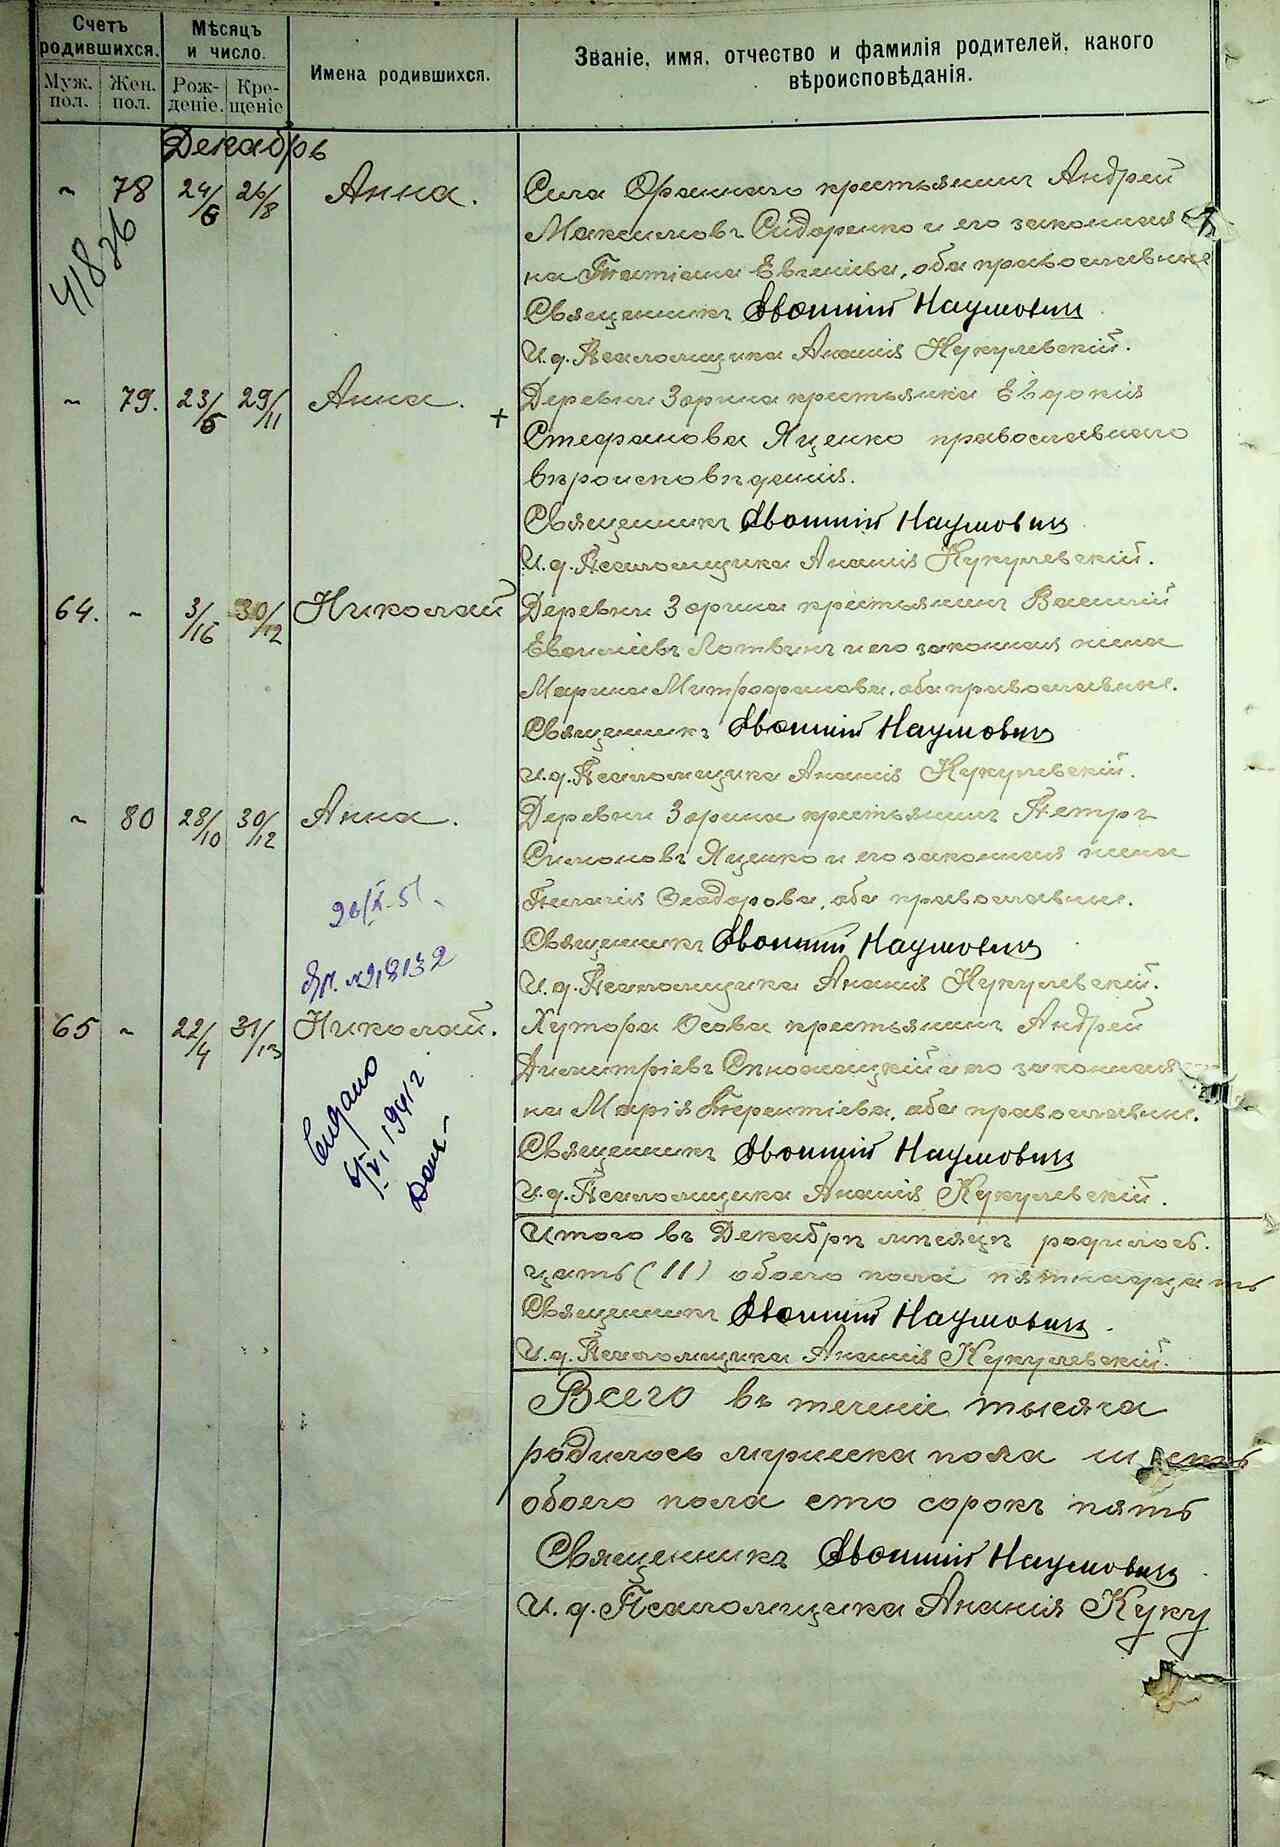 Счетъ родившихся.
Муж. пол.
Жен. пол.
Мѣсяцъ и число.
Рож-деніе.
Кре-щеніе
Имена родившихся.
Званіе, имя, отчество и фамилія родителей, какого
вѣроисповѣданія.
Декабрь
~ 78 24/6 26/8 Анна.
41826
Села Ораннаго крестьянинъ Андрей
Максимовъ Сидоренко и его законная
на Татіана Евгеніева, оба православные
Священникъ Наумовичъ
И. д. Псаломщика Ананія Кукулевскій.
~ 79. 23/5 29/11 Анна. +
Деревни Зорина крестьянка Евдокія
Стефанова Яценко православнаго
вѣроисповѣденія.
Священникъ Наумовичъ
И. д. Псаломщика Ананія Кукулевскій.
64. ~ 3/16 30/12 Николай
Деревни Зорина крестьянинъ Василій
Лотвинъ и его законная жена
Марина Митрофанова, оба православные.
Священникъ Наумовичъ
И. д. Псаломщика Ананія Кукулевскій.
~ 80 28/10 30/12 Анна.
Деревни Зорина крестьянинъ Петръ
Симоновъ Яценко и его законная жена
Пелагія Феодорова, оба православные.
Священникъ Наумовичъ
И. д. Псаломщика Ананія Кукулевскій.
65 ~ 22/4 31/13 Николай.
Хутора Осова крестьянинъ Андрей
Димитріевъ и его законная
на Марія Терентіева, оба православные.
Священникъ Наумовичъ
И. д. Псаломщика Ананія Кукулевскій.
Итого въ Декабрѣ мѣсяцѣ родилось
цать (11) обоего пола пятнадцать
Священникъ Наумовичъ
И. д. Псаломщика Ананія Кукулевскій.
Всего въ теченіи тысяча
родилось мужеска пола
обоего пола сто сорокъ пять
Священникъ Наумовичъ
И. д. Псаломщика Ананія Куку